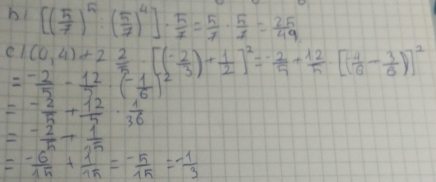 b) [(5/7)^5 : (5/7)^4] · 5/7 = 5/7 · 5/7 = 25/49
c) (0,4) + 2 2/5 · [(-2/3) + 1/2]^2 = -2/5 + 12/5 · [(-4/6 - 3/6)]^2
= -2/5 - 12/5 · (-1/6)^2
= -2/5 + 12/5 · 1/36
= -2/5 + 1/15
= -6/15 + 1/15 = -5/15 = -1/3